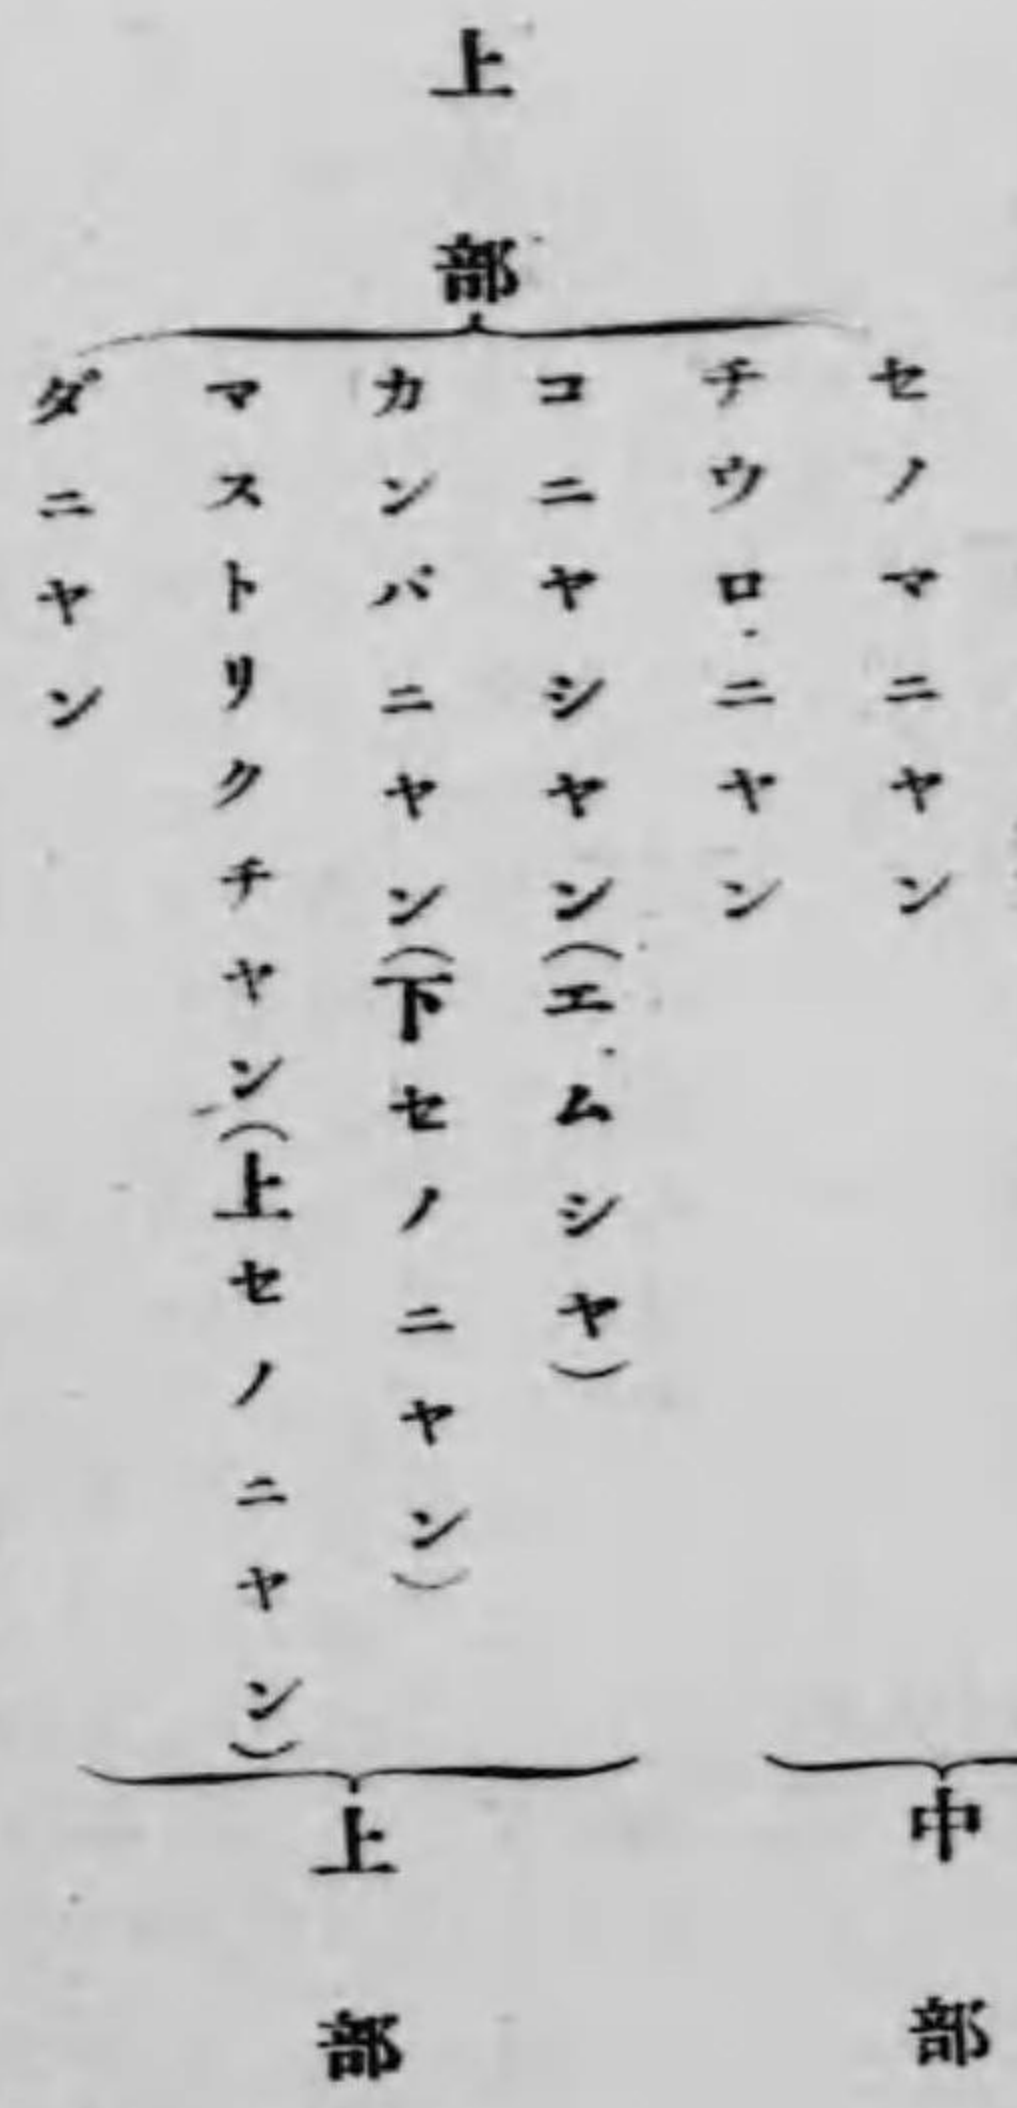 上部
セノマニヤン
チウロニヤン
コニヤシヤン(エムシヤ)
カンパニヤン(下セノニヤン)
マストリクチヤン(上セノニヤン)
ダニヤン
中部
上部